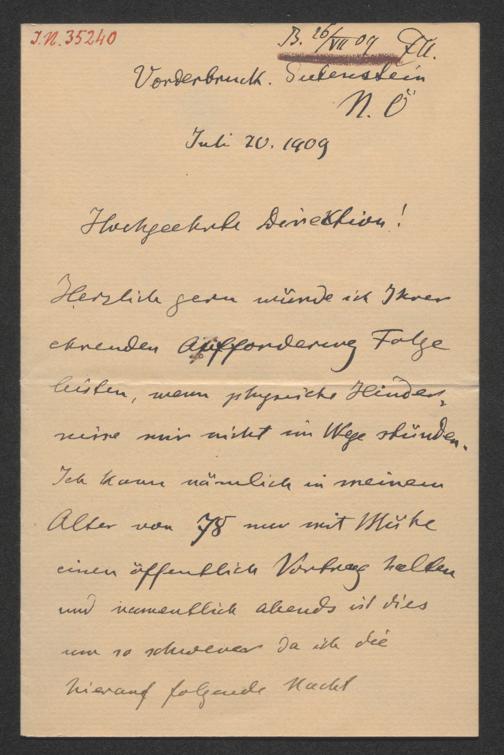 I.N. 35240
B. 26/VII 09
Vorderbruck. Gutenstein
N. Ö
Juli 20. 1909
Hochgeehrte Direktion!
Herzlich gern würde ich Ihrer
ehrenden Aufforderung Folge
leisten, wenn physische Hinder-
nisse mir nicht im Wege stünden.
Ich kann nämlich in meinem
Alter von 78 nur mit Mühe
einen öffentlich Vortrag halten
und namentlich abends ist dies
um so schwerer da ich die
hierauf folgende Nacht